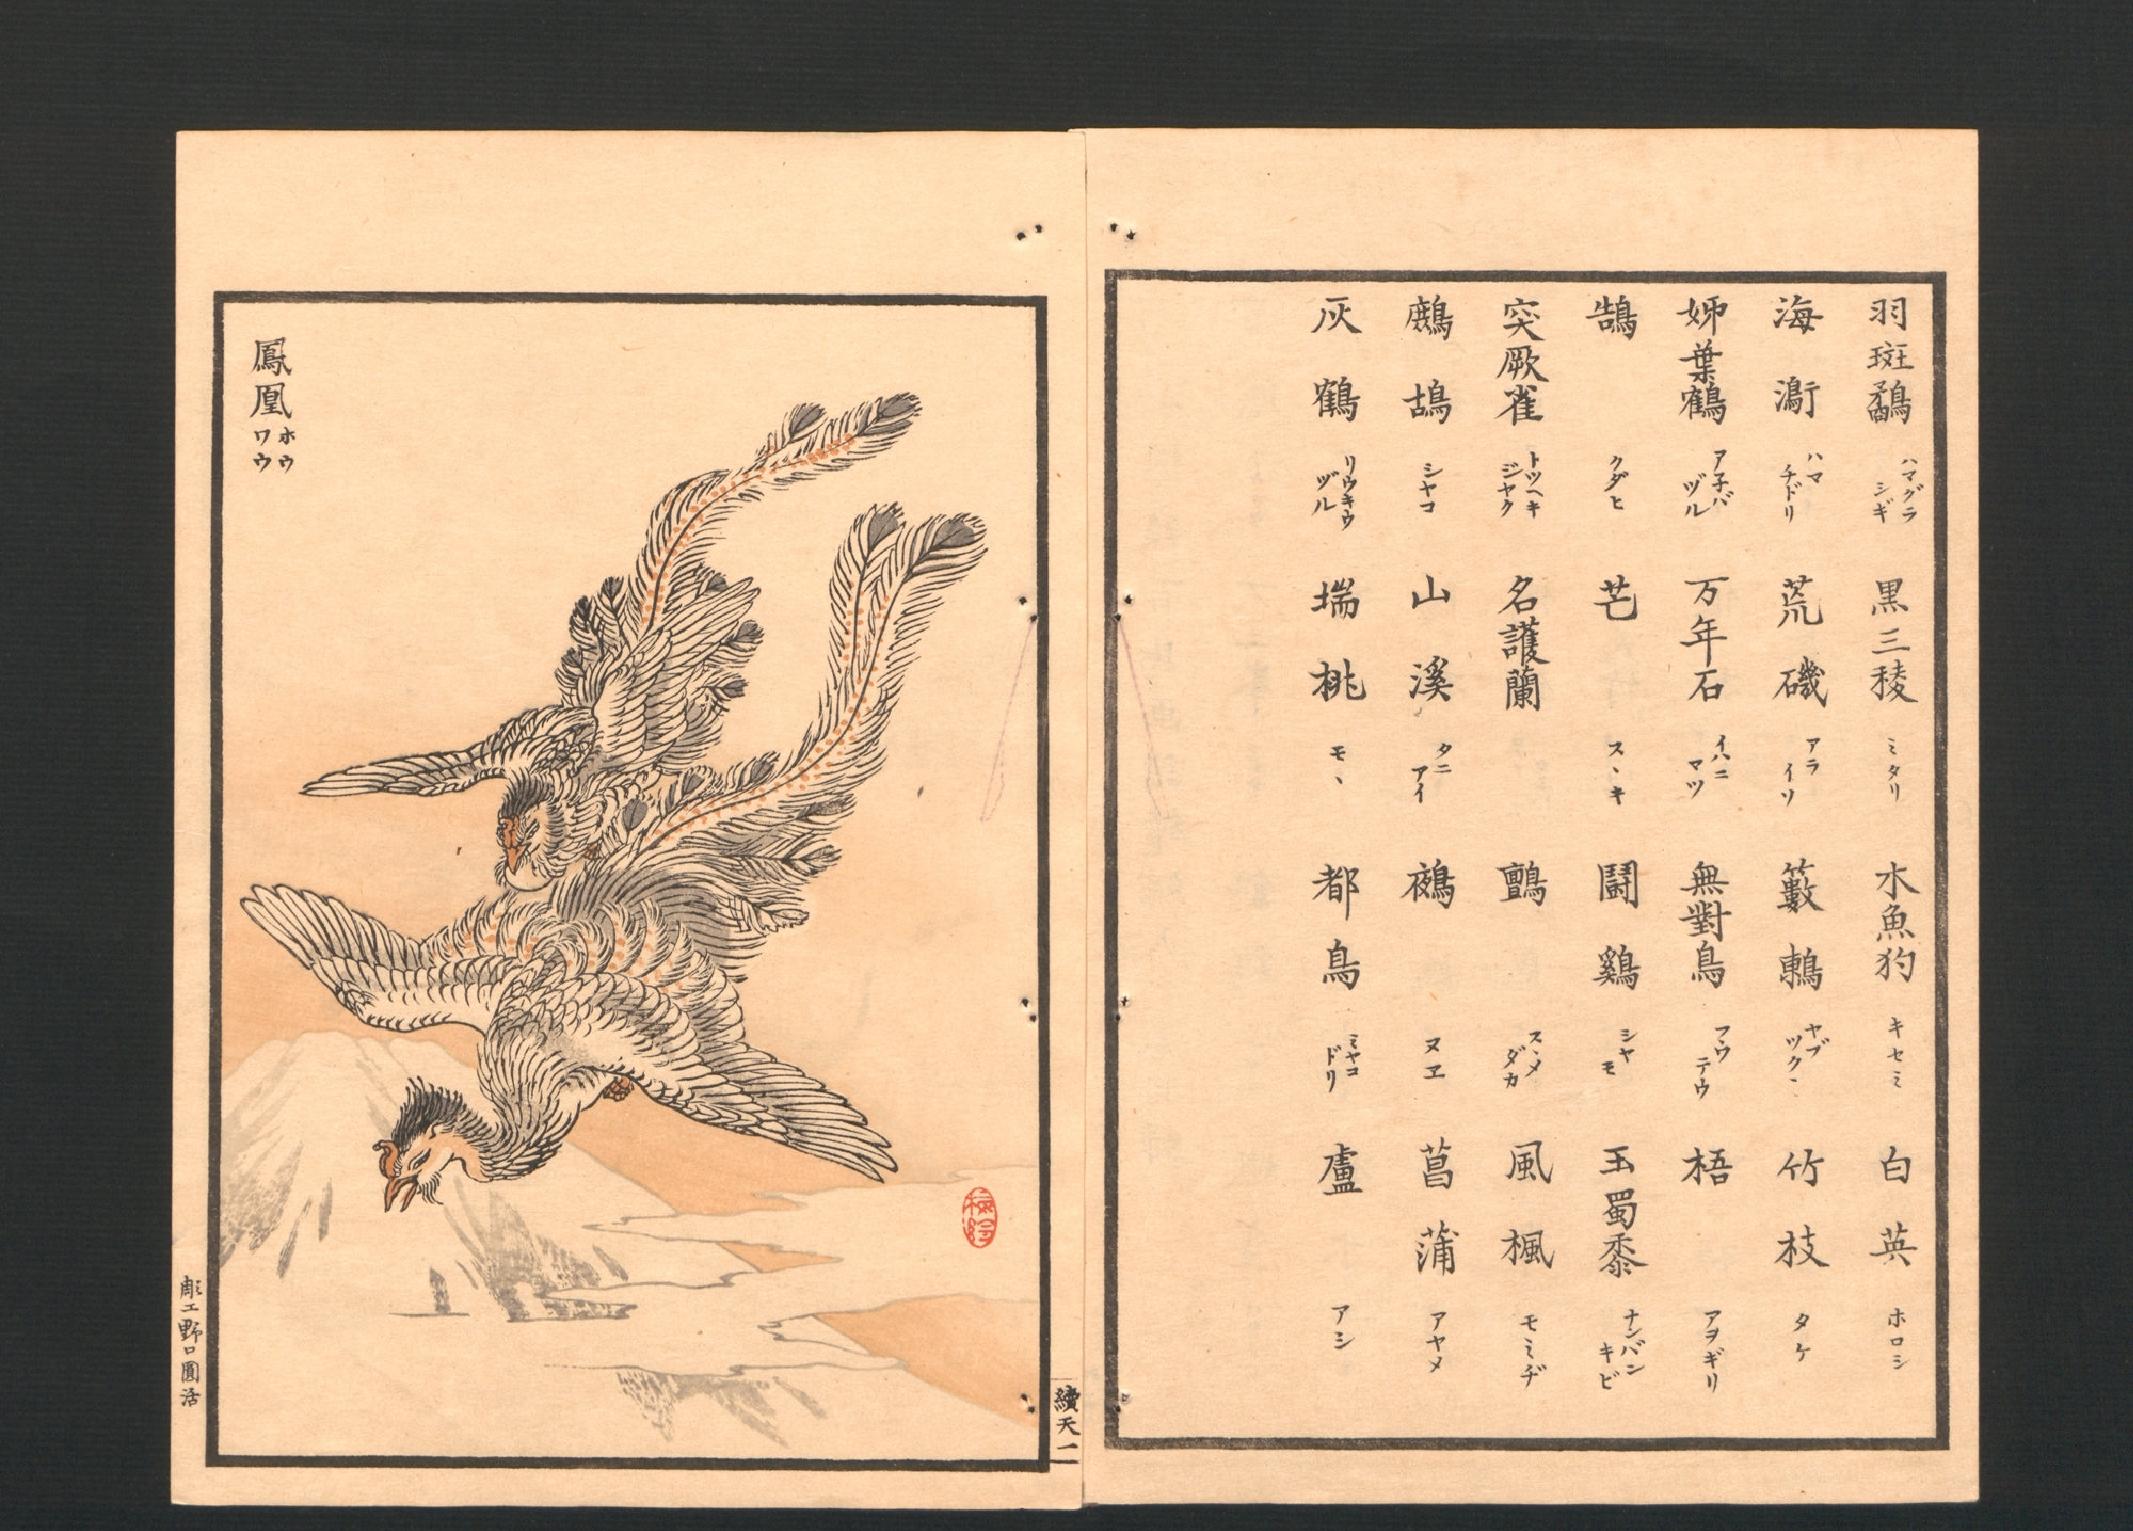 羽斑鷸 ハマグラシギ 黒三稜 ミタリ 水魚狗 キセミ 白英 ホロシ
海鵆 ハマチドリ 荒磯 アライソ 籔鶇 ヤブツグミ 竹枝 タケ
姉葉鶴 アネバヅル 万年石 イハニマツ 無對鳥 フウテウ 梧 アヲギリ
鵠 クグヒ 芒 スヽキ 鬪鷄 シヤモ 玉蜀黍 ナンバンキビ
突厥雀 トツヘキジヤク 名護蘭 鸇 スヽメダカ 風楓 モミヂ
鷓鴣 シヤコ 山溪 タニアイ 鵺 ヌヱ 菖蒲 アヤメ
灰鶴 リウキウヅル 瑞桃 モヽ 都鳥 ミヤコドリ 蘆 アシ
鳳凰 ホウワウ
梅嶺
續天 一
彫工野口圓活